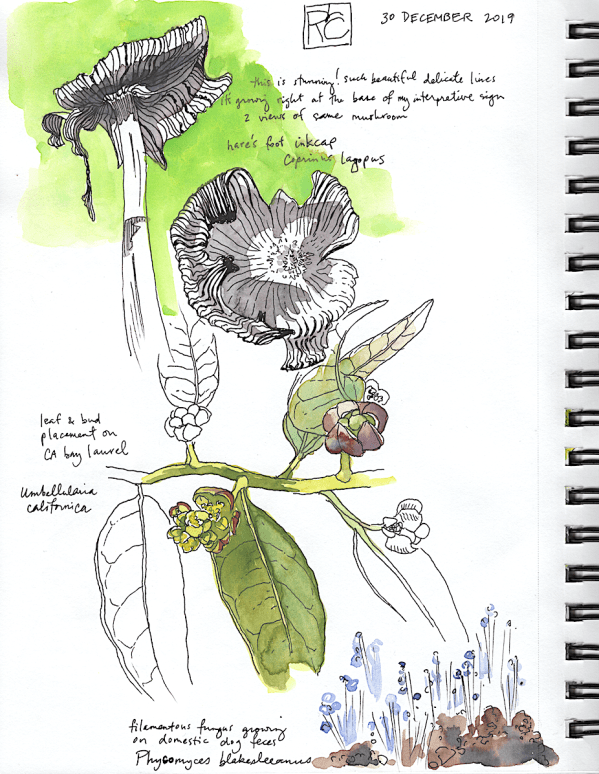 RC
30 DECEMBER 2019
this is stunning! such beautiful delicate lines
its growing right at the base of my interpretive sign
2 views of same mushroom
hare's foot inkcap
Coprinus lagopus
leaf & bud
placement on
CA bay laurel
Umbellularia
californica
filamentous fungus growing
on domestic dog feces
Phycomyces blakesleeanus